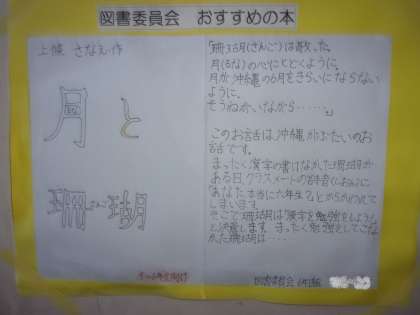 図書委員会 おすすめの本
上條 さなえ・作
月と
珊瑚
さんご
「珊瑚(さんご)は歌った。
月(るな)の心にとどくように。
月が沖縄の6月をきらいにならない
ように。
そうねがいながら・・・・・。」
このお話は、沖縄がぶたいのお
話です。
まったく漢字の書けなかった珊瑚が
ある日、クラスメートの
「あなた、本当に六年生?」とからかわれて
しまいます。
そこで珊瑚は「漢字を勉強をしよう」
と決意します。まったく勉強をしてこなか
った珊瑚は・・・・
図書委員会 6年